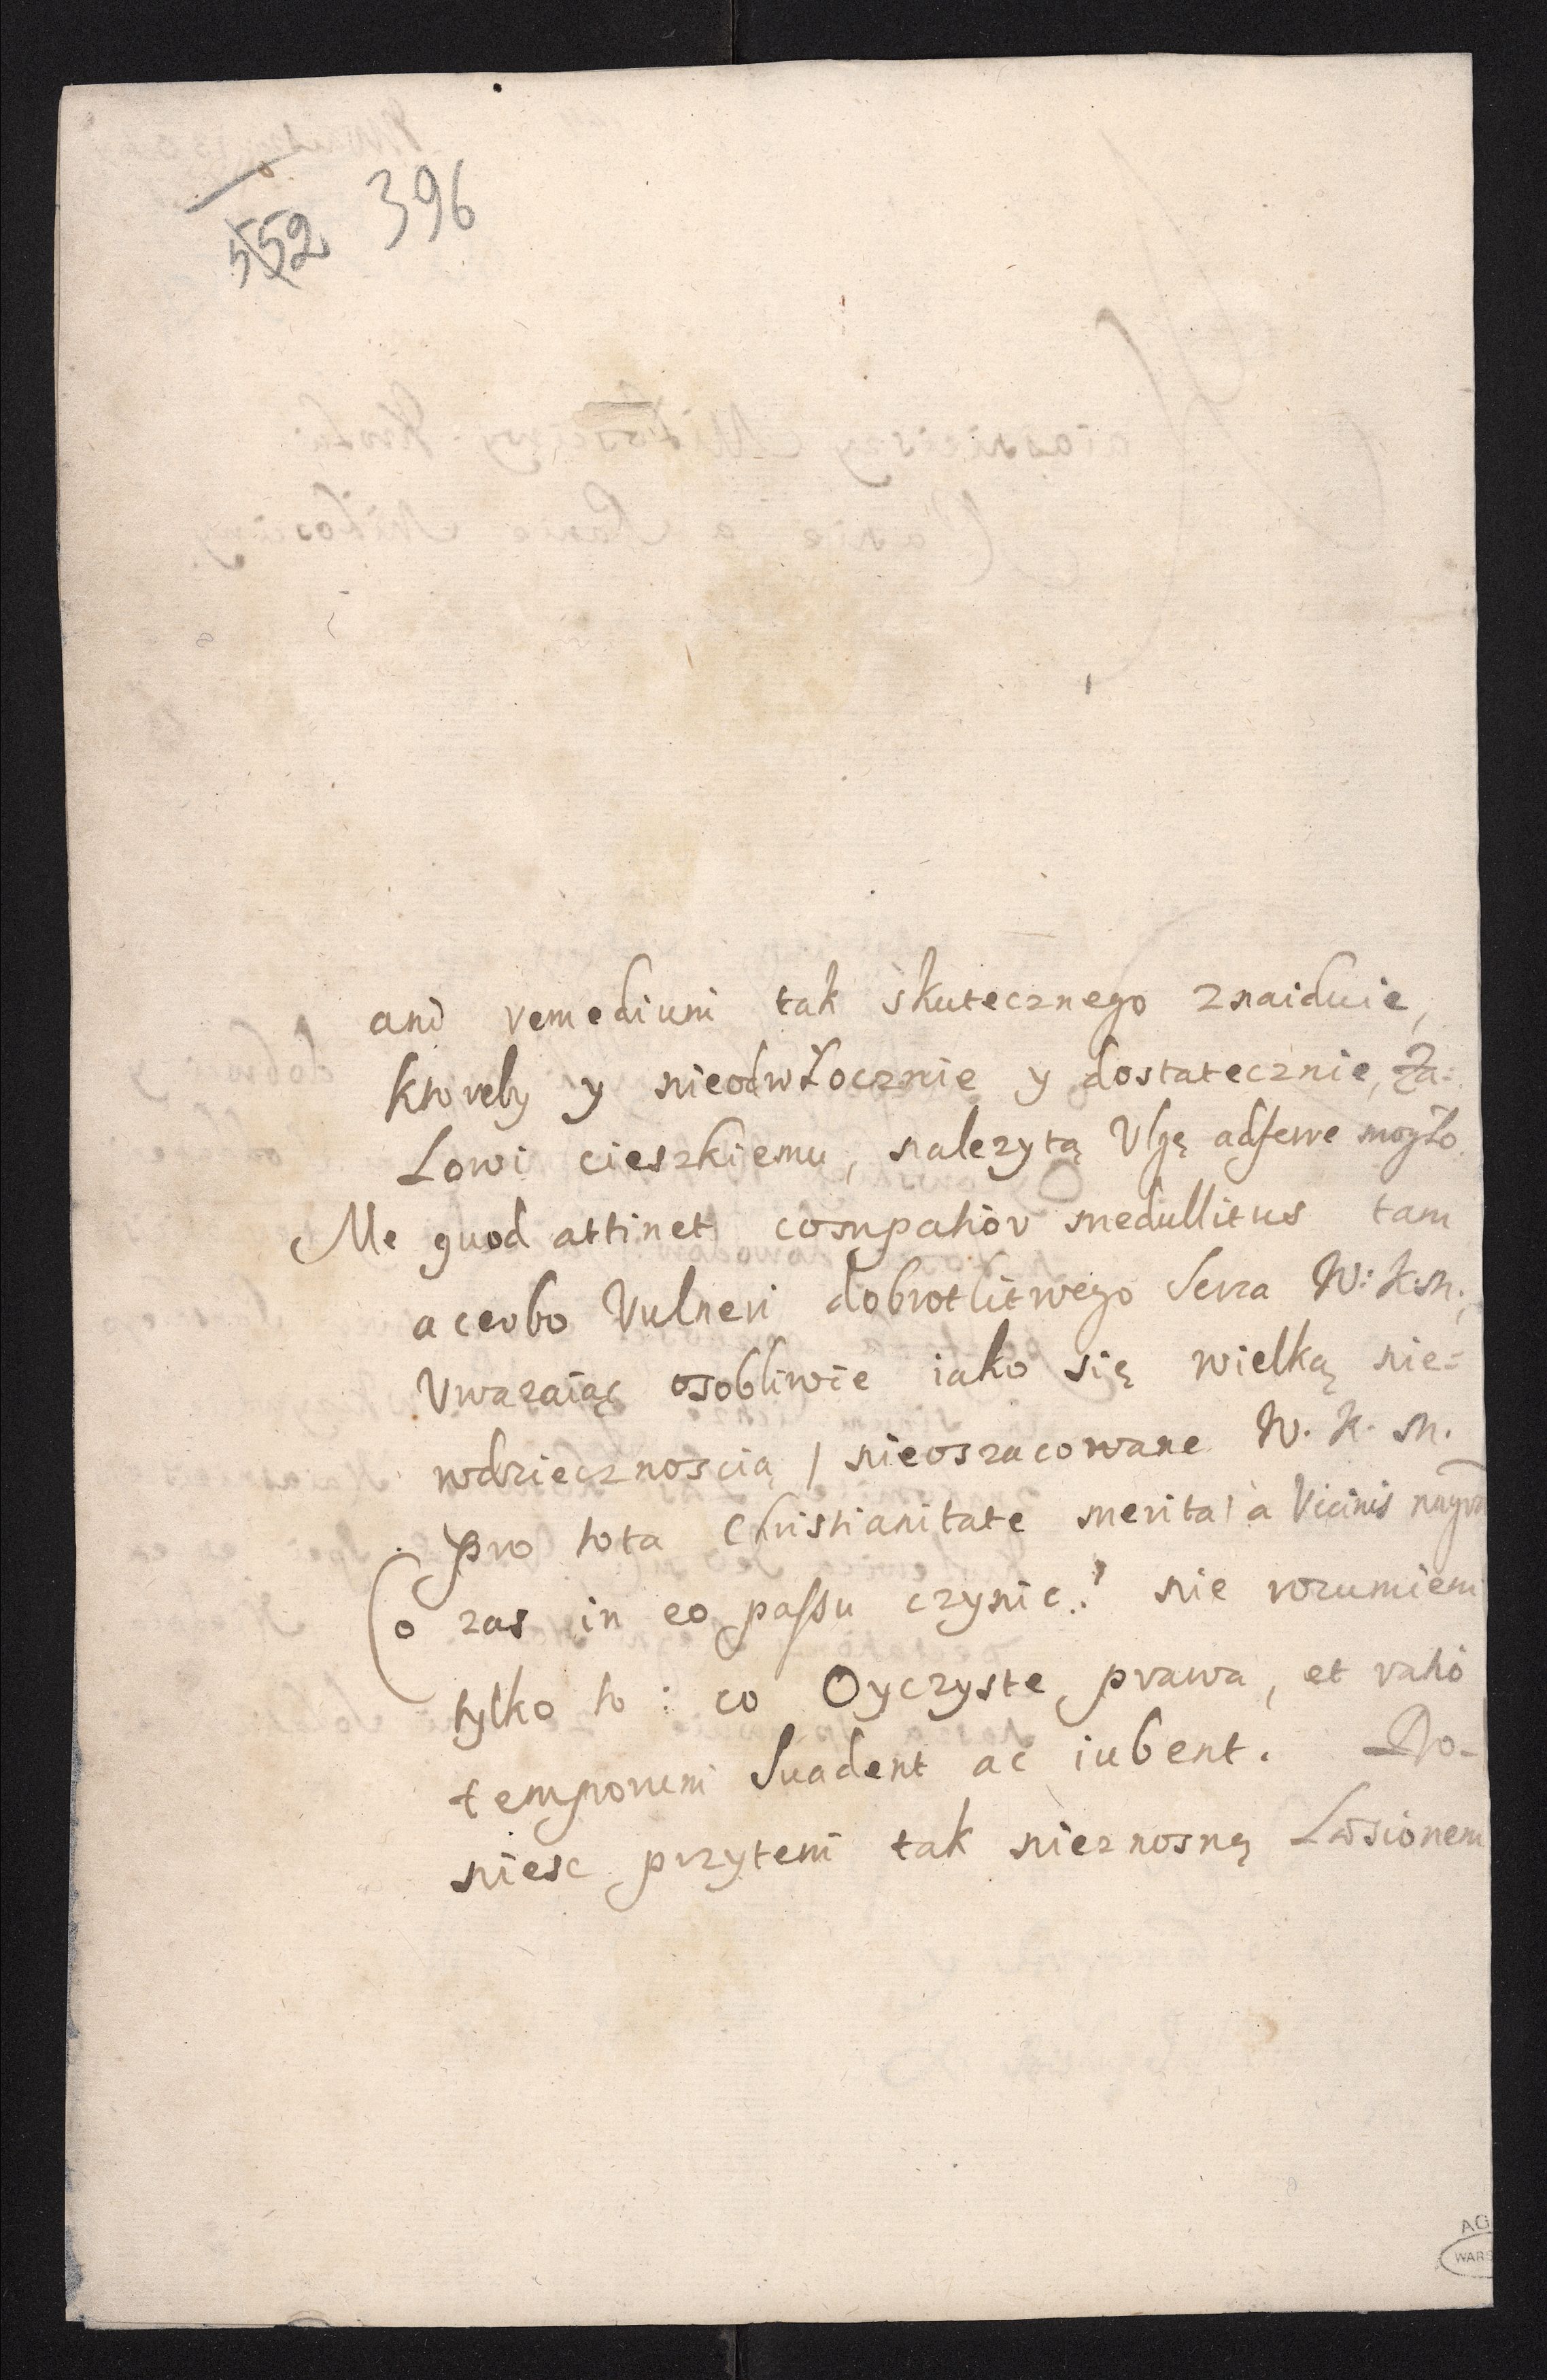 552 396
ani remedium tak skutecznego znaiduie,
ktoreby y nieodwłocznie y dostatecznie, Za=
Lowi cieszkiemu, nalezytą Vlgę adferre mogło.
Me quod attinet, compatior medullitus tam
acerbo Vulneri dobrotlitwego Serca W: K.M.,
Vwazaiąc osobliwie iako się wielką nie=
wdziecznoscią / nieoszacowane W. K. M.
pro tota Christianitate merita / a Vicinis
Co zas in eo passu czynic? nie rozumiem
tylko to: co Oyczyste prawa, et ratio
temporum Suadent ac iubent. Do-
niesc przytem tak nieznosną Læsionem
AG
WARS